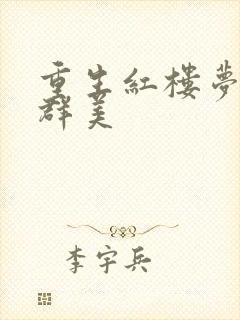 重生紅樓夢
群美
李宇兵